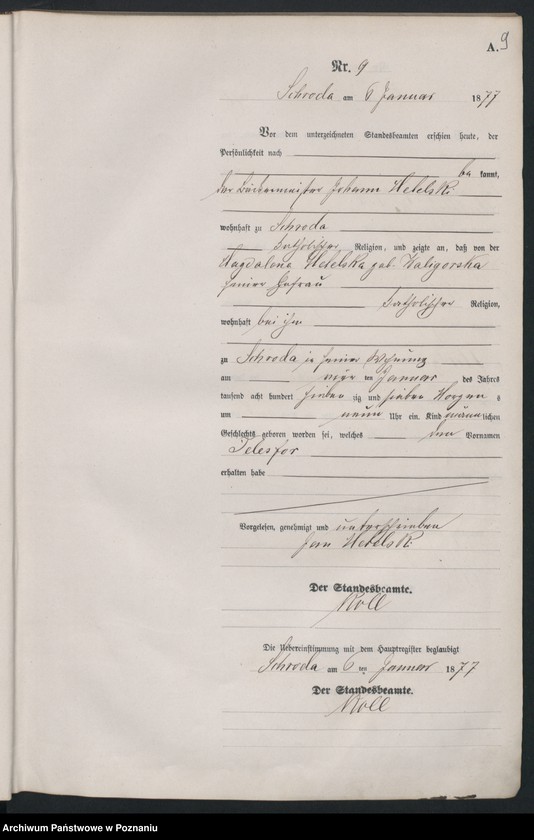 A. 9
Nr. 9
Schroda am 6 Januar 1877
Vor dem unterzeichneten Standesbeamten erschien heute, der
Persönlichkeit nach
be kannt,
der Bäckermeister Johann Hebelski
wohnhaft zu Schroda
katholischer Religion, und zeigte an, daß von der
Magdalena Hebelska geb. Waligorska
seiner Ehefrau
katholischer Religion,
wohnhaft bei ihm
zu Schroda in seiner Wohnung
am vier ten Januar des Jahres
tausend acht hundert sieben zig und sieben Morgen s
um neun Uhr ein Kind männ lichen
Geschlechts geboren worden sei, welches den Vornamen
Telesfor
erhalten habe
Vorgelesen, genehmigt und unterschrieben
Jan Hebelski
Der Standesbeamte.
Roll
Die Uebereinstimmung mit dem Hauptregister beglaubigt
Schroda am 6 ten Januar 1877
Der Standesbeamte.
Roll
Archiwum Państwowe w Poznaniu